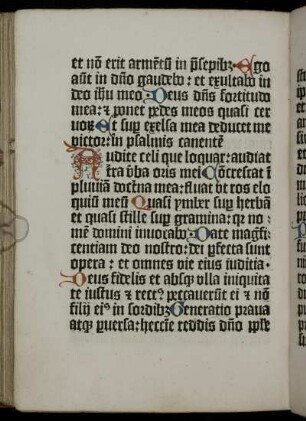 et nō erit armētū in p̄sepibꝫ Ego
aūt in dño gaudebo: et exultabo in
deo ihū meo. Deus dñs fortitudo
mea: ⁊ ponet pedes meos quasi cer
uoꝝ Et suꝑ exelsa mea deducet me
victor: in psalmis canentē
Audite celi que loquar: audiat
t̄ra v̄ba oris mei Cōcrescat ī
pluuiā doctⁱna mea: fluat vt ros elo
quiū meū Quasi ymber suꝑ herbā
et quasi stille suꝑ gramina: qꝛ no-
mē domini inuocabo. Date magⁱfi
centiam deo nostro: dei ꝑfecta sunt
opera: et omnes vie eius iuditia.
Deus fidelis et absqꝫ vlla iniquita
te iustus ⁊ rectꝰ peccauerūt ei ⁊ nō
filij eiꝰ in sordibꝫ Generatio praua
atqꝫ ꝑuersa: heccīe reddis dño ppl̄e